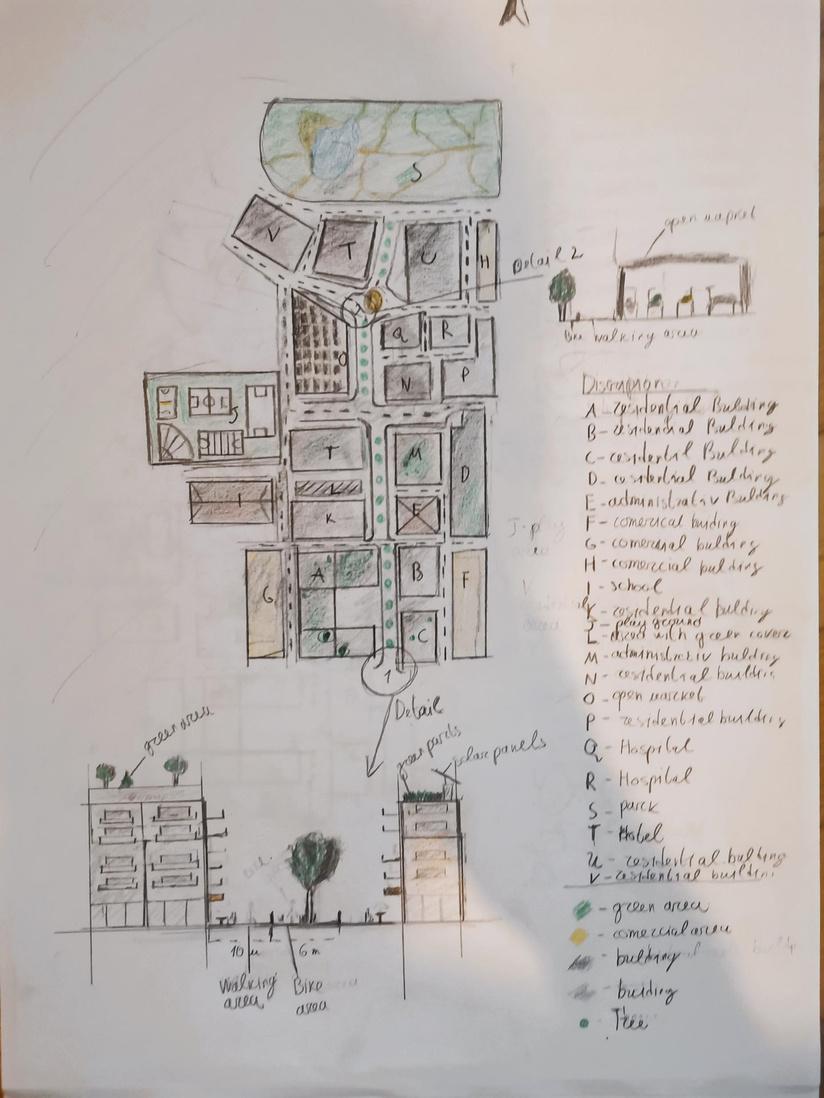 S
V
T
U
H
Detail 2
open
walking area
Q
R
O
N
P
J
T
M
D
I
L
K
E
G
A
B
F
C
1
Detail
green area
solar panels
10 m
6 m
walking
area
Bike
area
A - residential Building
B - residential Building
C - residential Building
D - residential Building
E - administrativ Building
F - comerical buiding
G - comersial building
H - comercial building
I - school
K - residential building
J - play ground
L - with green cover
M - administrativ building
N - residential building
O - open market
P - residential building
Q - Hospital
R - Hospital
S - parck
T - Hotel
U - residential
V - residential building
- green area
- comercial area
- building
- building
- Tree